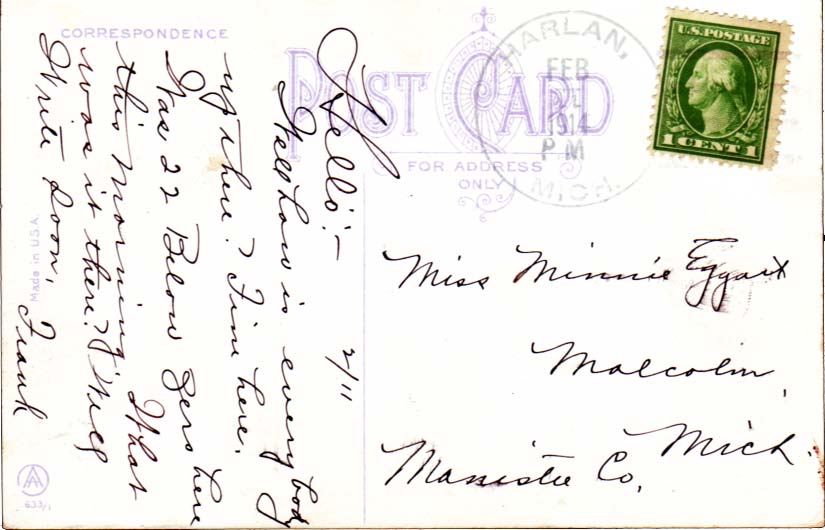 CORRESPONDENCE
POST CARD
FOR ADDRESS
ONLY
Made in U.S.A.
633/1
HARLAN,
FEB
1914
P M
MICH.
U.S. POSTAGE
1 CENT 1
2/11
Hello:-
Well how is every body
up there? Fine here.
Was 22 Below Zero here
this morning. What
was it there? Will
Write Soon, Frank
Miss Minnie Eggart
Malcolm,
Mich.
Manistee Co,